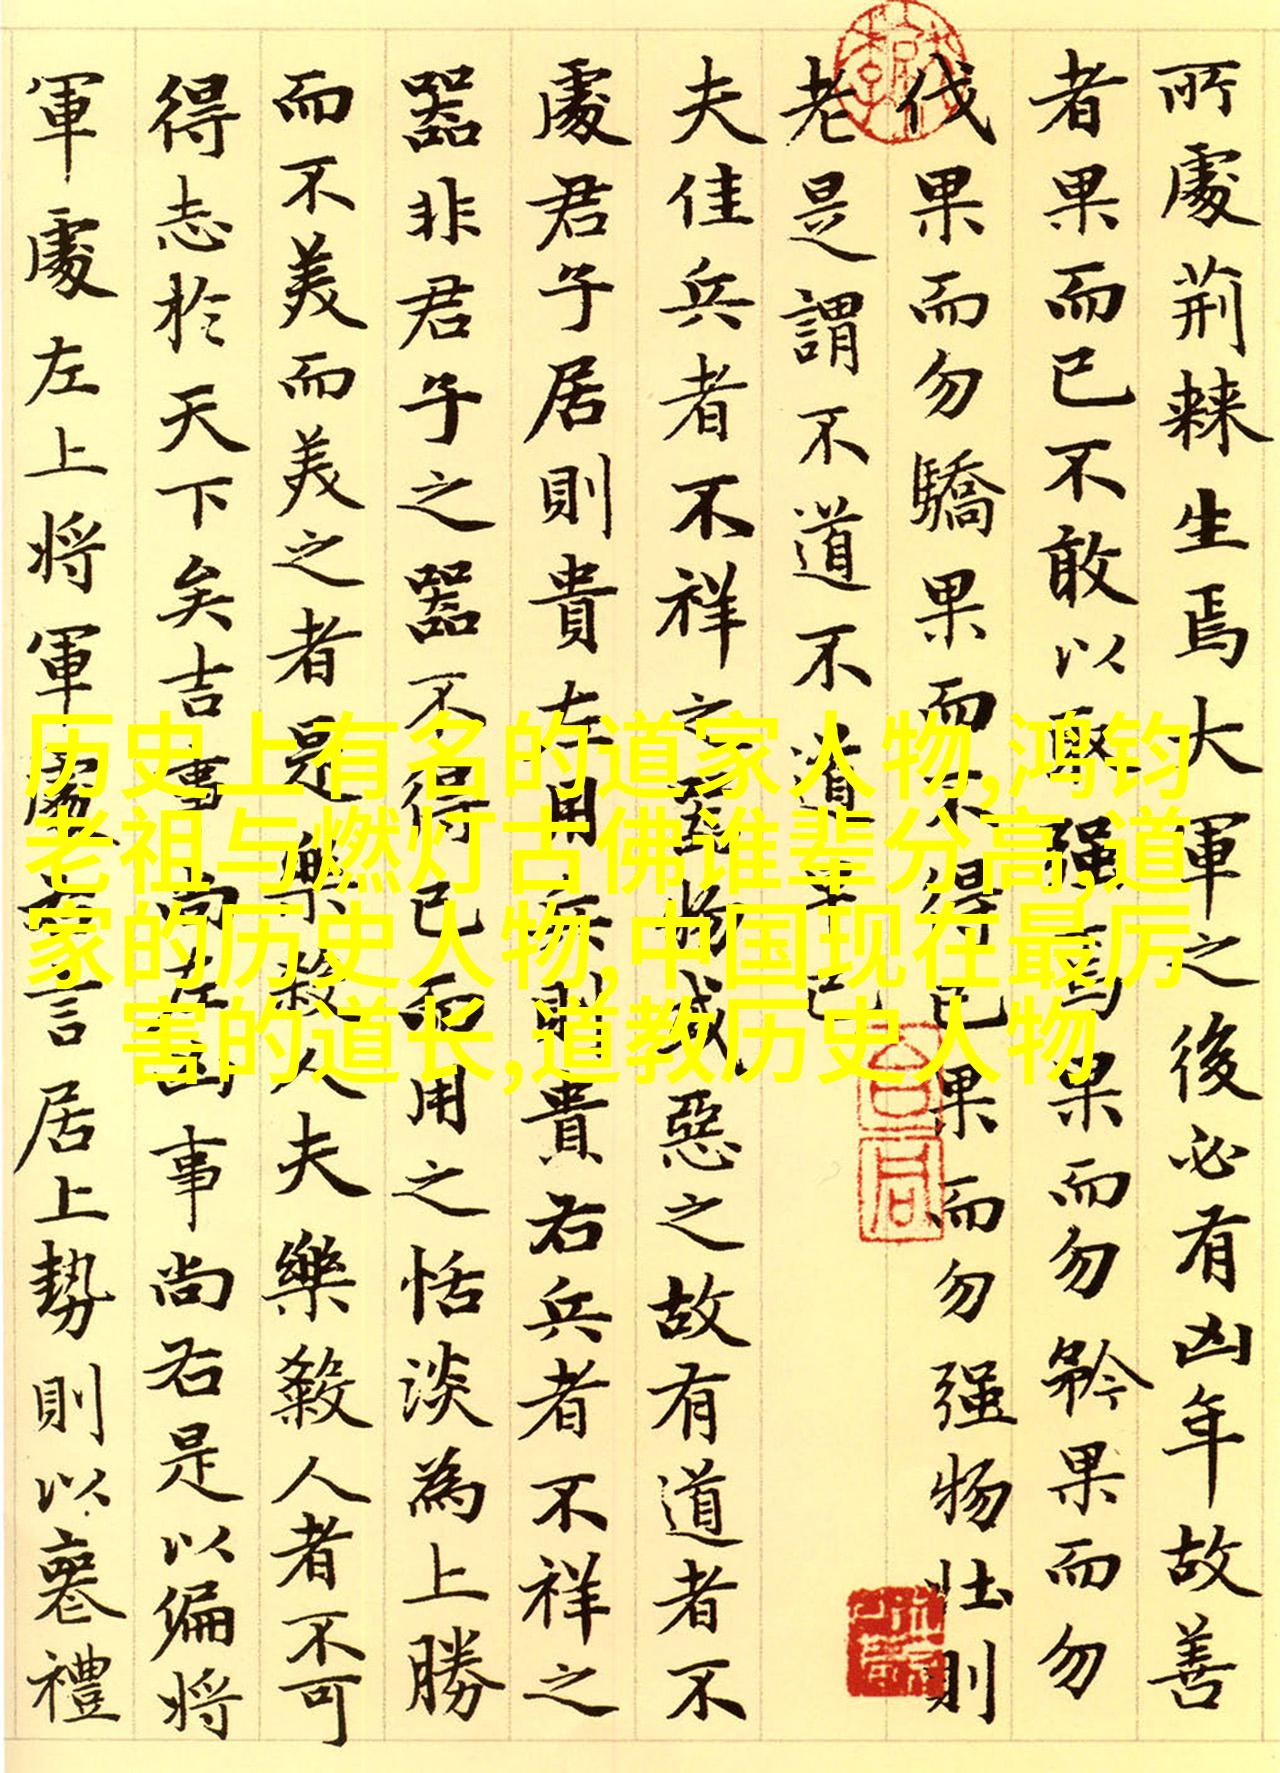 所處荊棘生焉大軍之後必有凶年故善
者果而已不敢以取强焉果而勿矜果而勿
伐果而勿驕果而不得已果而勿强物壯則
老是謂不道不道早已
夫佳兵者不祥之器物或惡之故有道者不
處君子居則貴左用兵則貴右兵者不祥之
器非君子之器不得已而用之恬淡為上勝
而不美而美之者是樂殺人夫樂殺人者不可
得志於天下矣吉事尚左凶事尚右是以偏將
軍處左上將軍處右言居上勢則以喪禮
历史上有名的道家人物,鸿钧
老祖与燃灯古佛谁辈分高,道
家的历史人物,中国现在最厉
害的道长,道教历史人物